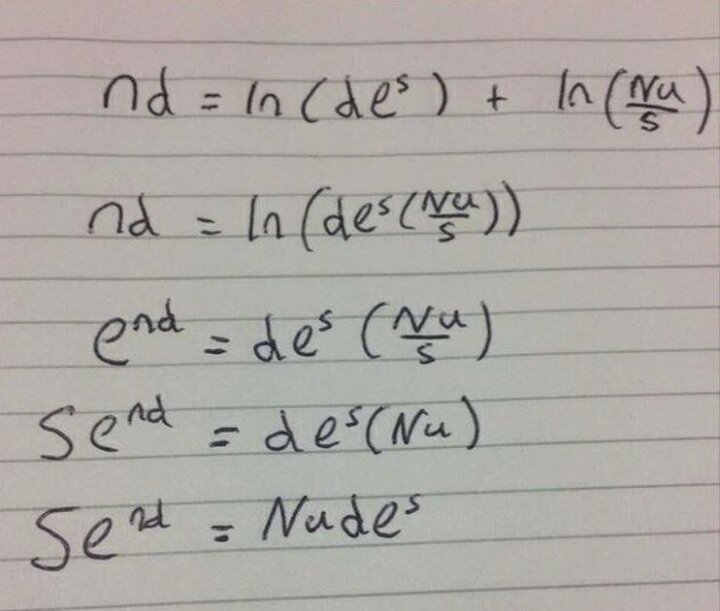 nd = ln(de^s) + ln(Nu/s)
nd = ln(de^s(Nu/s))
e^nd = de^s(Nu/s)
Se^nd = de^s(Nu)
Se^nd = Nude^s